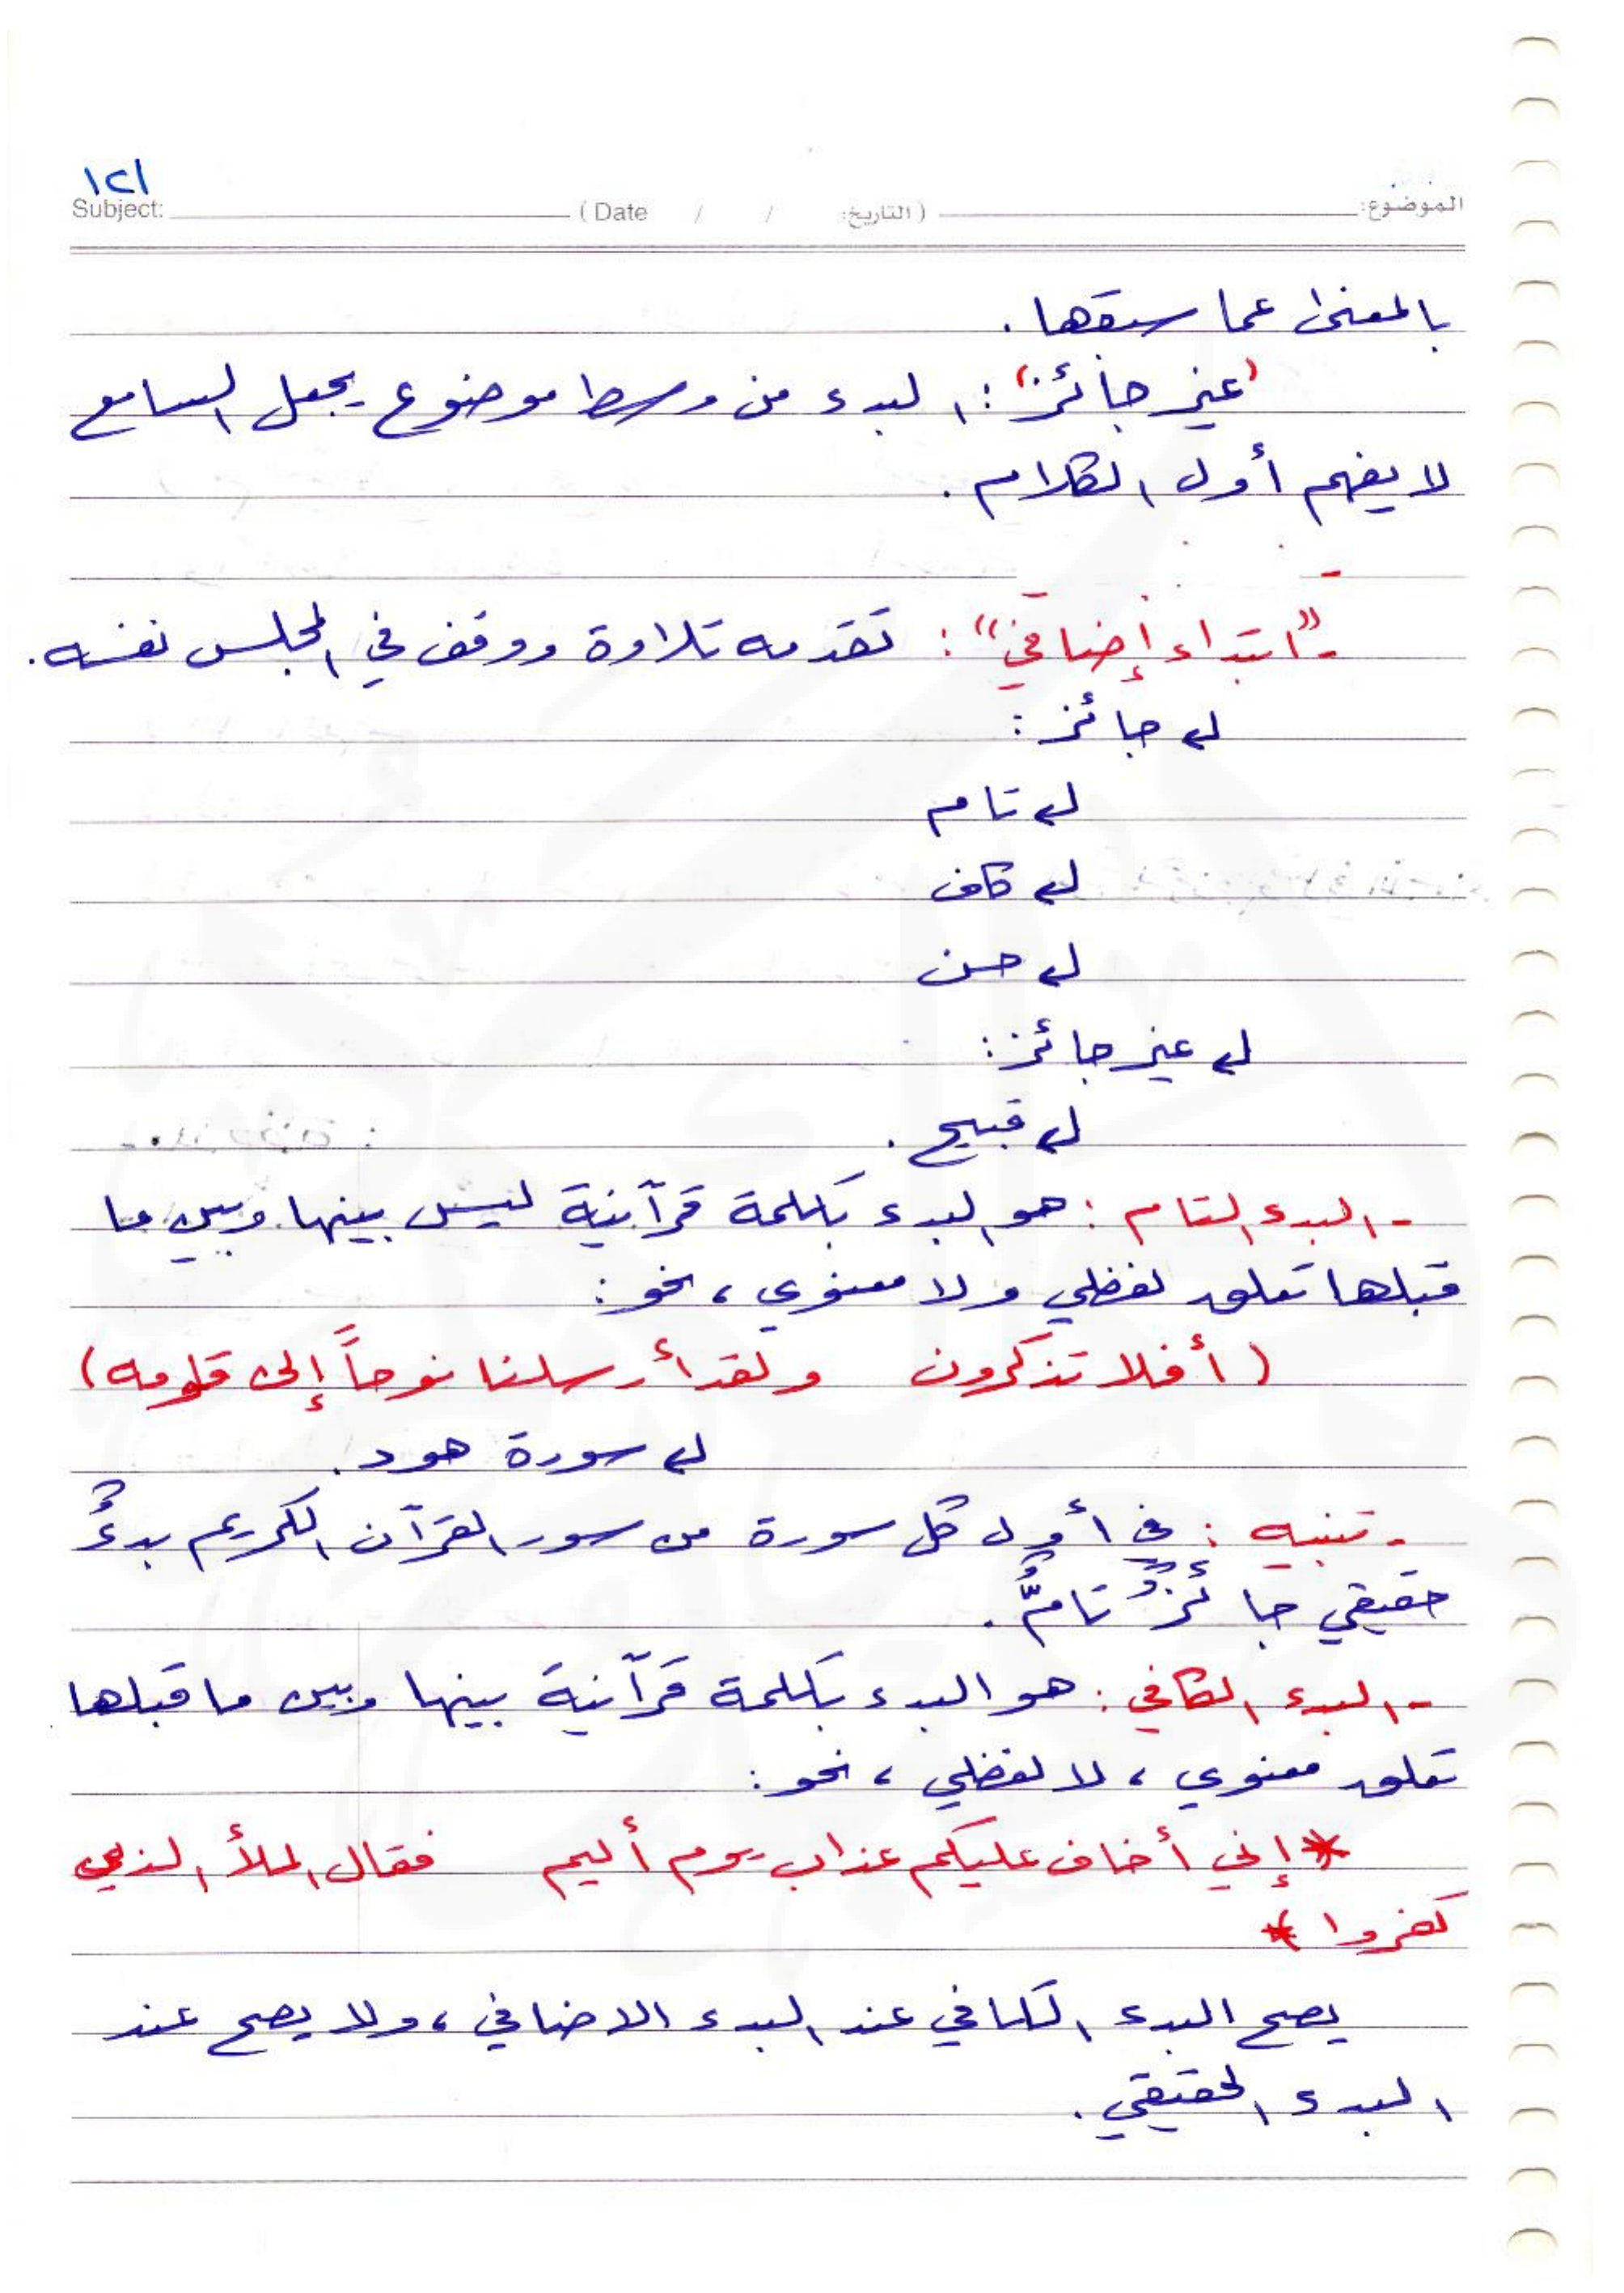 ١٢١
الموضوع: (التاريخ: / / Date) Subject:
بالمعنى عما سبقها .
"غير جائز" : البدء من وسط موضوع يجعل السامع
لا يفهم أول الكلام .
- "ابتداء إضافي" : تقدمه تلاوة ووقف في المجلس نفسه .
ـ جائز :
ـ تام
ـ كاف
ـ حسن
ـ غير جائز :
ـ قبيح .
- البدء التام : هو البدء بكلمة قرآنية ليس بينها وبين ما
قبلها تعلق لفظي ولا معنوي ، نحو :
( أفلا تذكرون ولقد أرسلنا نوحاً إلى قومه )
ـ سورة هود .
- تنبيه : في أول كل سورة من سور القرآن الكريم بدءٌ
حقيقي جائزٌ تامٌّ .
- البدء الكافي : هو البدء بكلمة قرآنية بينها وبين ما قبلها
تعلق معنوي ، لا لفظي ، نحو :
* إني أخاف عليكم عذاب يوم أليم فقال الملأ الذين
كفروا *
يصح البدء الكافي عند البدء الاضافي ، ولا يصح عند
البدء الحقيقي .